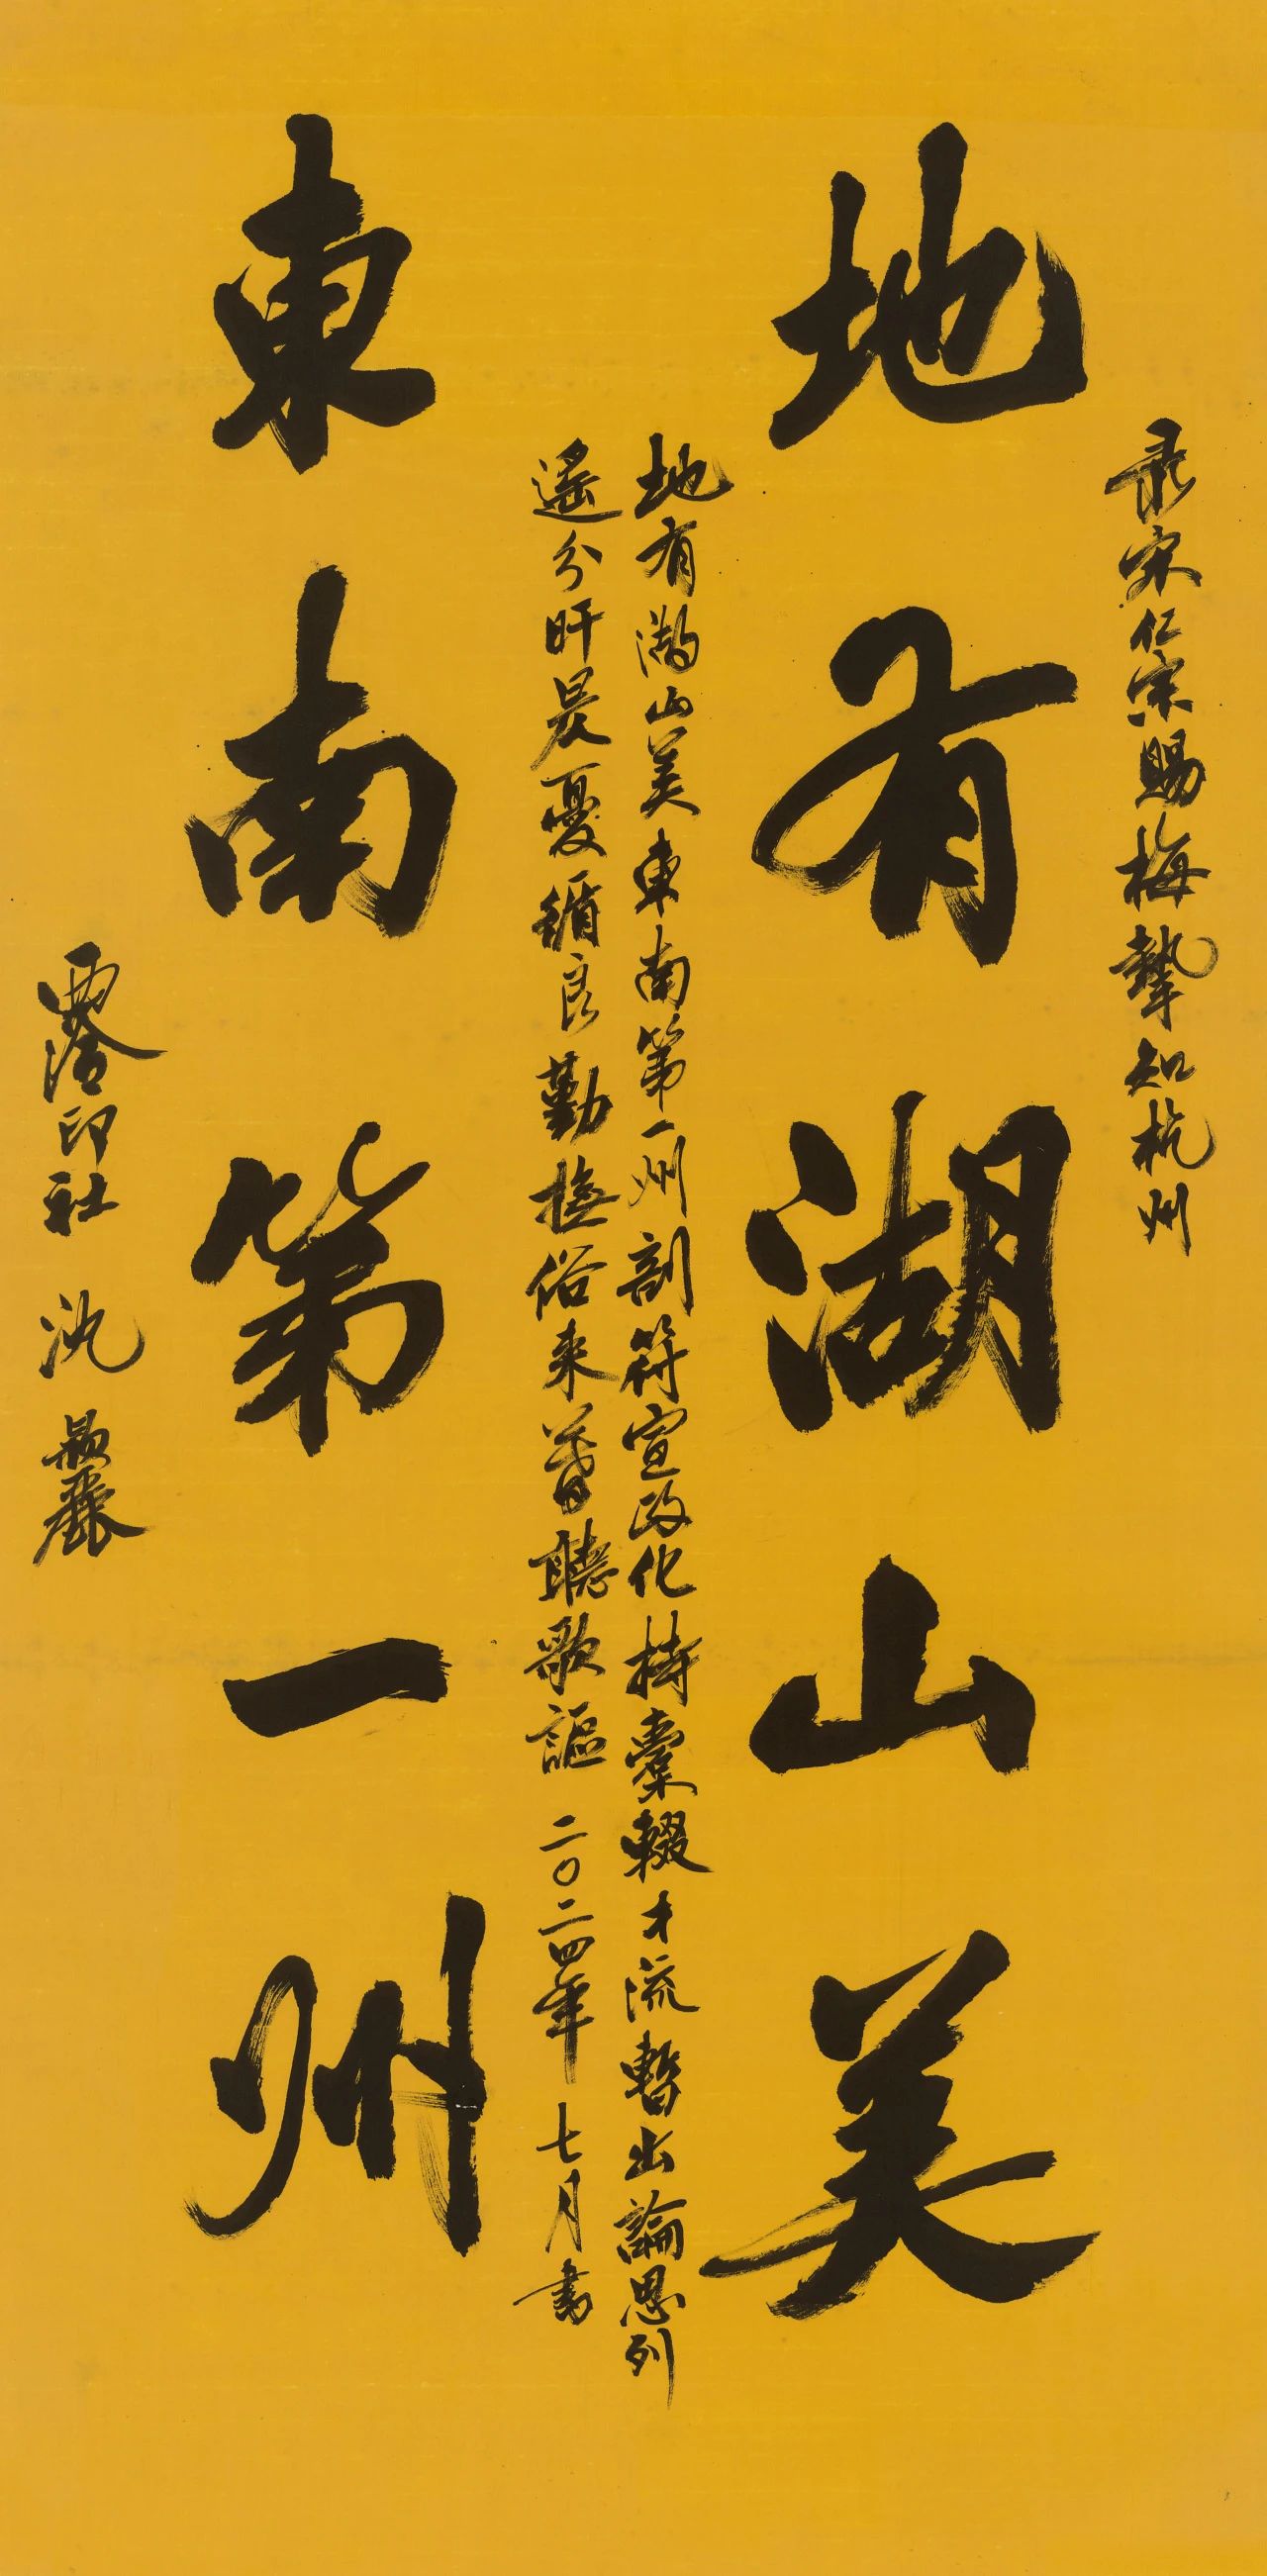 录宋仁宗賜梅摯知杭州
地有湖山美
地有湖山美東南第一州剖符宣政化持橐輟才流暫出論思列
遥分旰昃憂循良勤撫俗来暮聽歌謳 二〇二四年七月書
東南第一州
西泠印社 沈 颢麗